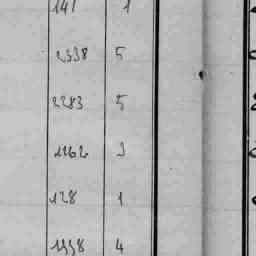 141 1
2338 5
2283 5
1162 3
128 1
1338 4